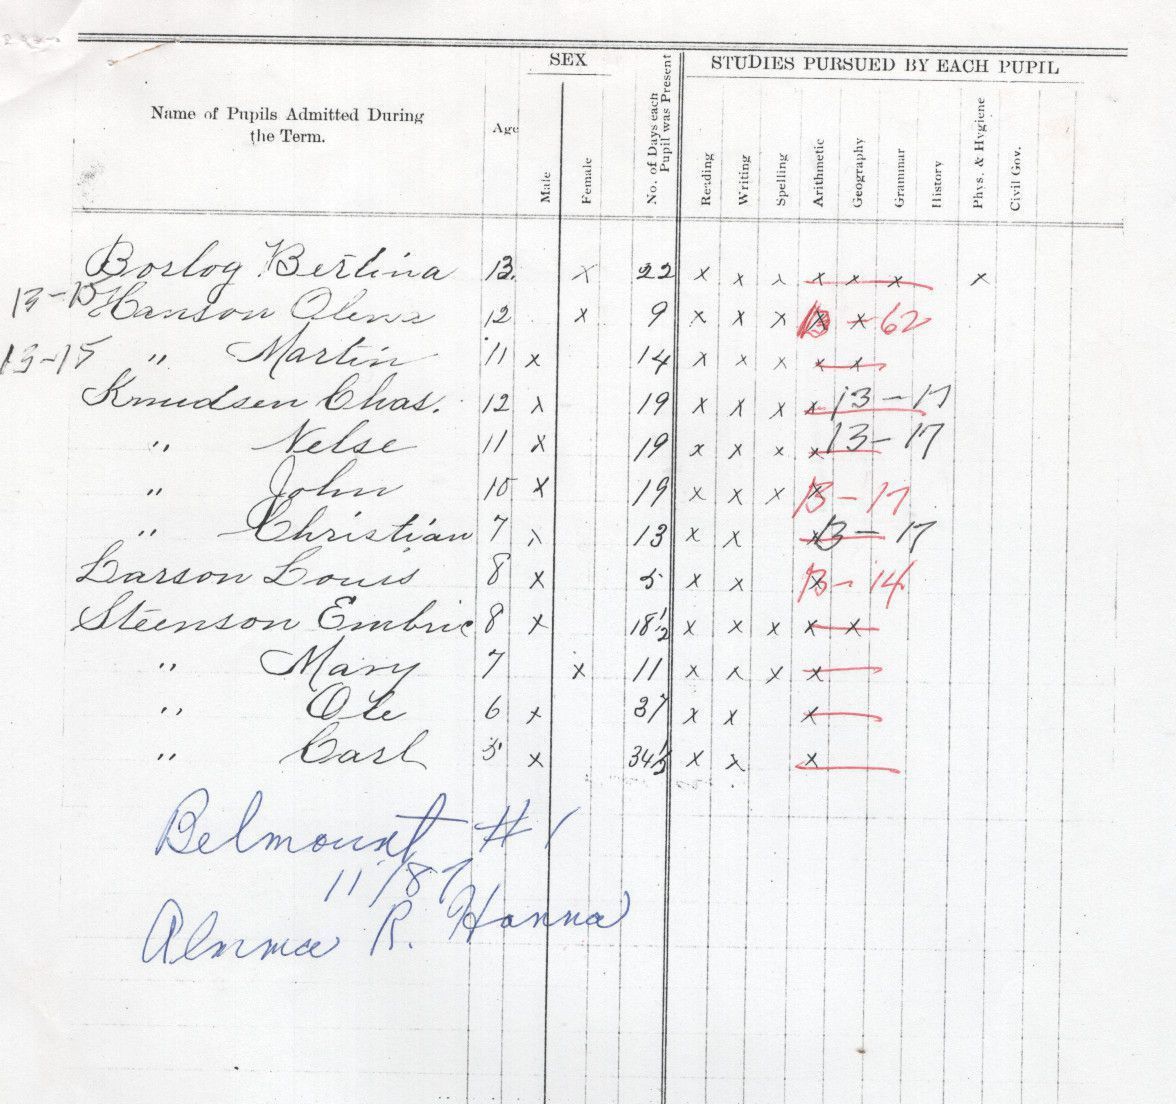 SEX
STUDIES PURSUED BY EACH PUPIL
Name of Pupils Admitted During
the Term.
Age
Male
Female
No. of Days each
Pupil was Present
Reading
Writing
Spelling
Arithmetic
Geography
Grammar
History
Phys. & Hygiene
Civil Gov.
Borlog Bertina 13. x 22 x x x x x x x
13-15 Hanson Olena 12 x 9 x x x x x 13-62
13-15 " Martin 11 x 14 x x x x x
Knudsen Chas. 12 x 19 x x x x 13-17
" Nelse 11 x 19 x x x x 13-17
" John 10 x 19 x x x x 13-17
" Christian 7 x 13 x x x 13-17
Larson Louis 8 x 5 x x x 13-14
Steenson Embric 8 x 18½ x x x x x
" Mary 7 x 11 x x x x
" Ole 6 x 37 x x x
" Carl 5 x 34½ x x x
Belmount #1
11/87
Almma R. Hanna